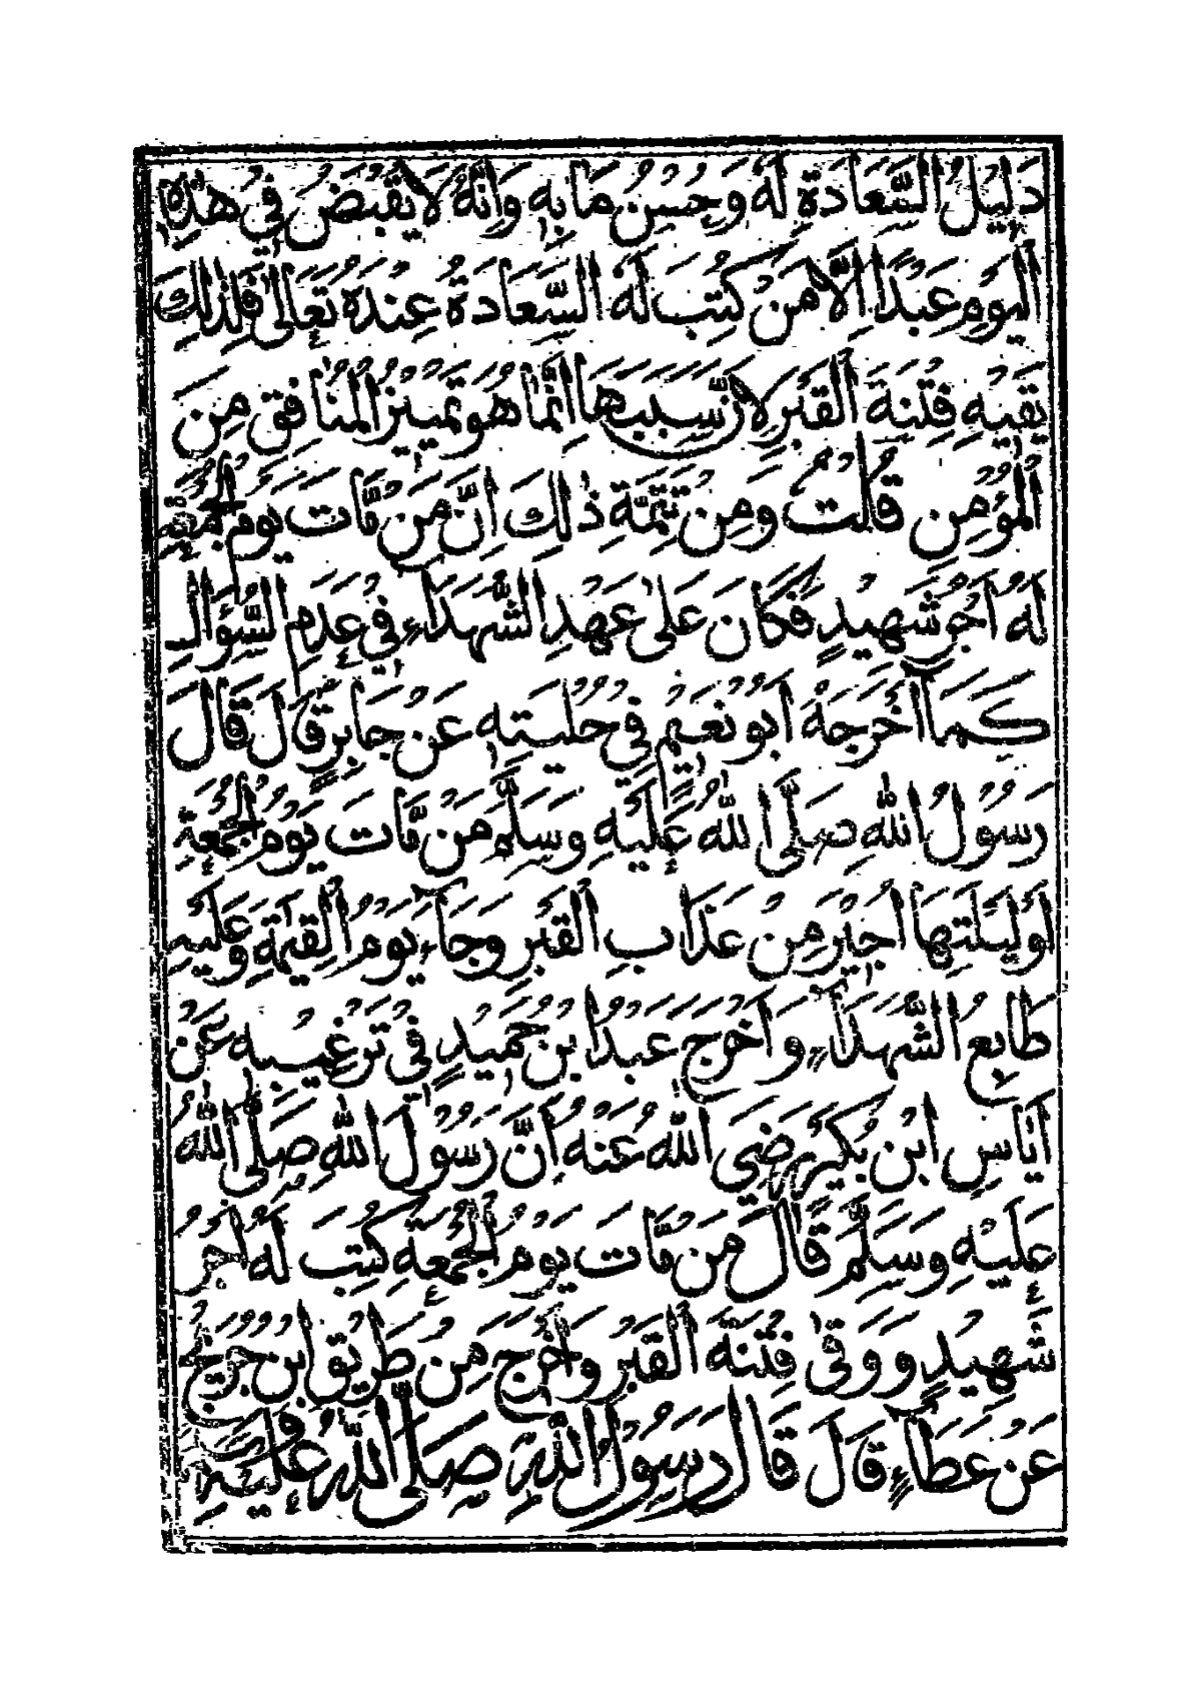 دَلِيْلُ السَّعَادَةِ لَهُ وَحُسْنِ مَاٰبِهٖ وَاَنَّهٗ لَا يَقْبِضُ فِيْ هٰذِا
الْيَوْمِ عَبْدًا اِلَّا مَنْ كُتِبَ لَهُ السَّعَادَةُ عِنْدَهٗ تَعَالٰى فَلِذٰلِكَ
يَقِيْهِ فِتْنَةَ الْقَبْرِ لِاَنَّ سَبَبَهَا اِنَّمَا هُوَ تَمْيِيْزُ الْمُنَافِقِ مِنَ
الْمُؤْمِنِ قُلْتُ وَمِنْ تَتِمَّةِ ذٰلِكَ اِنَّ مَنْ مَّاتَ يَوْمَ الْجُمُعَةِ
لَهٗ اَجْرُ شَهِيْدٍ فَكَانَ عَلٰى عَهْدِ الشُّهَدَاءِ فِيْ عَدَمِ السُّؤَالِ
كَمَا اَخْرَجَهٗ اَبُوْ نُعَيْمٍ فِيْ حُلْيَتِهٖ عَنْ جَابِرٍ قَالَ قَالَ
رَسُوْلُ اللّٰهِ صَلَّى اللّٰهُ عَلَيْهِ وَسَلَّمَ مَنْ مَّاتَ يَوْمَ الْجُمُعَةِ
اَوْ لَيْلَتَهَا اُجِيْرَ مِنْ عَذَابِ الْقَبْرِ وَجَاءَ يَوْمَ الْقِيٰمَةِ وَعَلَيْهِ
طَابِعُ الشُّهَدَاءِ وَاَخْرَجَ عَبْدُ ابْنُ حُمَيْدٍ فِيْ تَرْغِيْبِهٖ عَنْ
اَيَاسِ ابْنِ بُكَيْرٍ رَضِيَ اللّٰهُ عَنْهُ اِنَّ رَسُوْلَ اللّٰهِ صَلَّى اللّٰهُ
عَلَيْهِ وَسَلَّمَ قَالَ مَنْ مَّاتَ يَوْمَ الْجُمُعَةِ كُتِبَ لَهٗ اَجْرُ
شَهِيْدٍ وَوُقِيَ فِتْنَةَ الْقَبْرِ وَاَخْرَجَ مِنْ طَرِيْقِ ابْنِ جُرَيْجٍ
عَنْ عَطَاءٍ قَالَ قَالَ رَسُوْلُ اللّٰهِ صَلَّى اللّٰهُ عَلَيْهِ